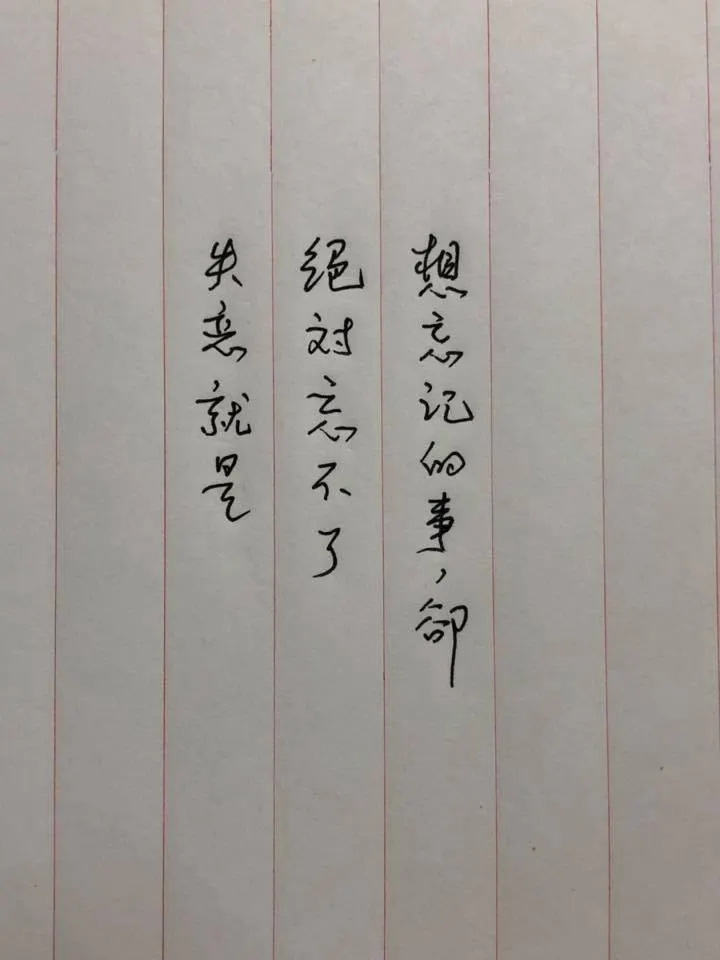 想忘记的事，卻
绝対忘不了
失恋就是